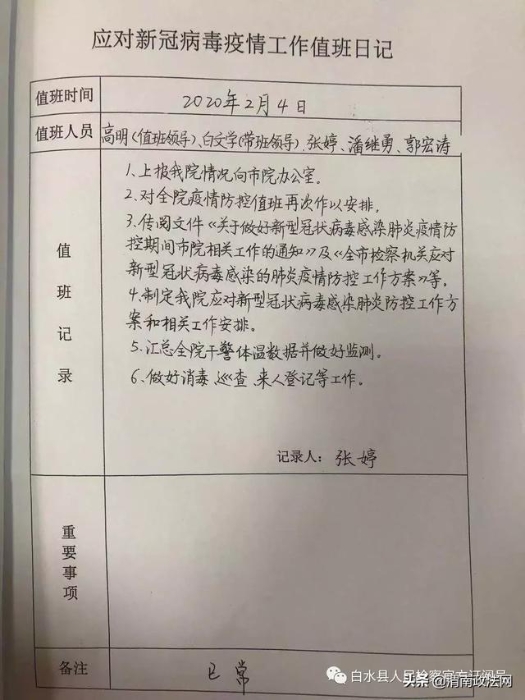 应对新冠病毒疫情工作值班日记
值班时间 2020年2月4日
值班人员 高明(值班领导)、白文学(带班领导)、张婷、潘继勇、郭宏涛
值班记录
1.上报我院情况向市院办公室。
2.对全院疫情防控值班再次作以安排。
3.传阅文件《关于做好新型冠状病毒感染肺炎疫情防
控期间市院相关工作的通知》及《全市检察机关应对
新型冠状病毒感染的肺炎疫情防控工作方案》等。
4.制定我院应对新型冠状病毒感染肺炎防控工作方
案和相关工作安排。
5.汇总全院干警体温数据并做好监测。
6.做好消毒、巡查、来人登记等工作。
记录人：张婷
重要事项
备注 常
白水县人民检察官方订阅号
头条@渭南政法网